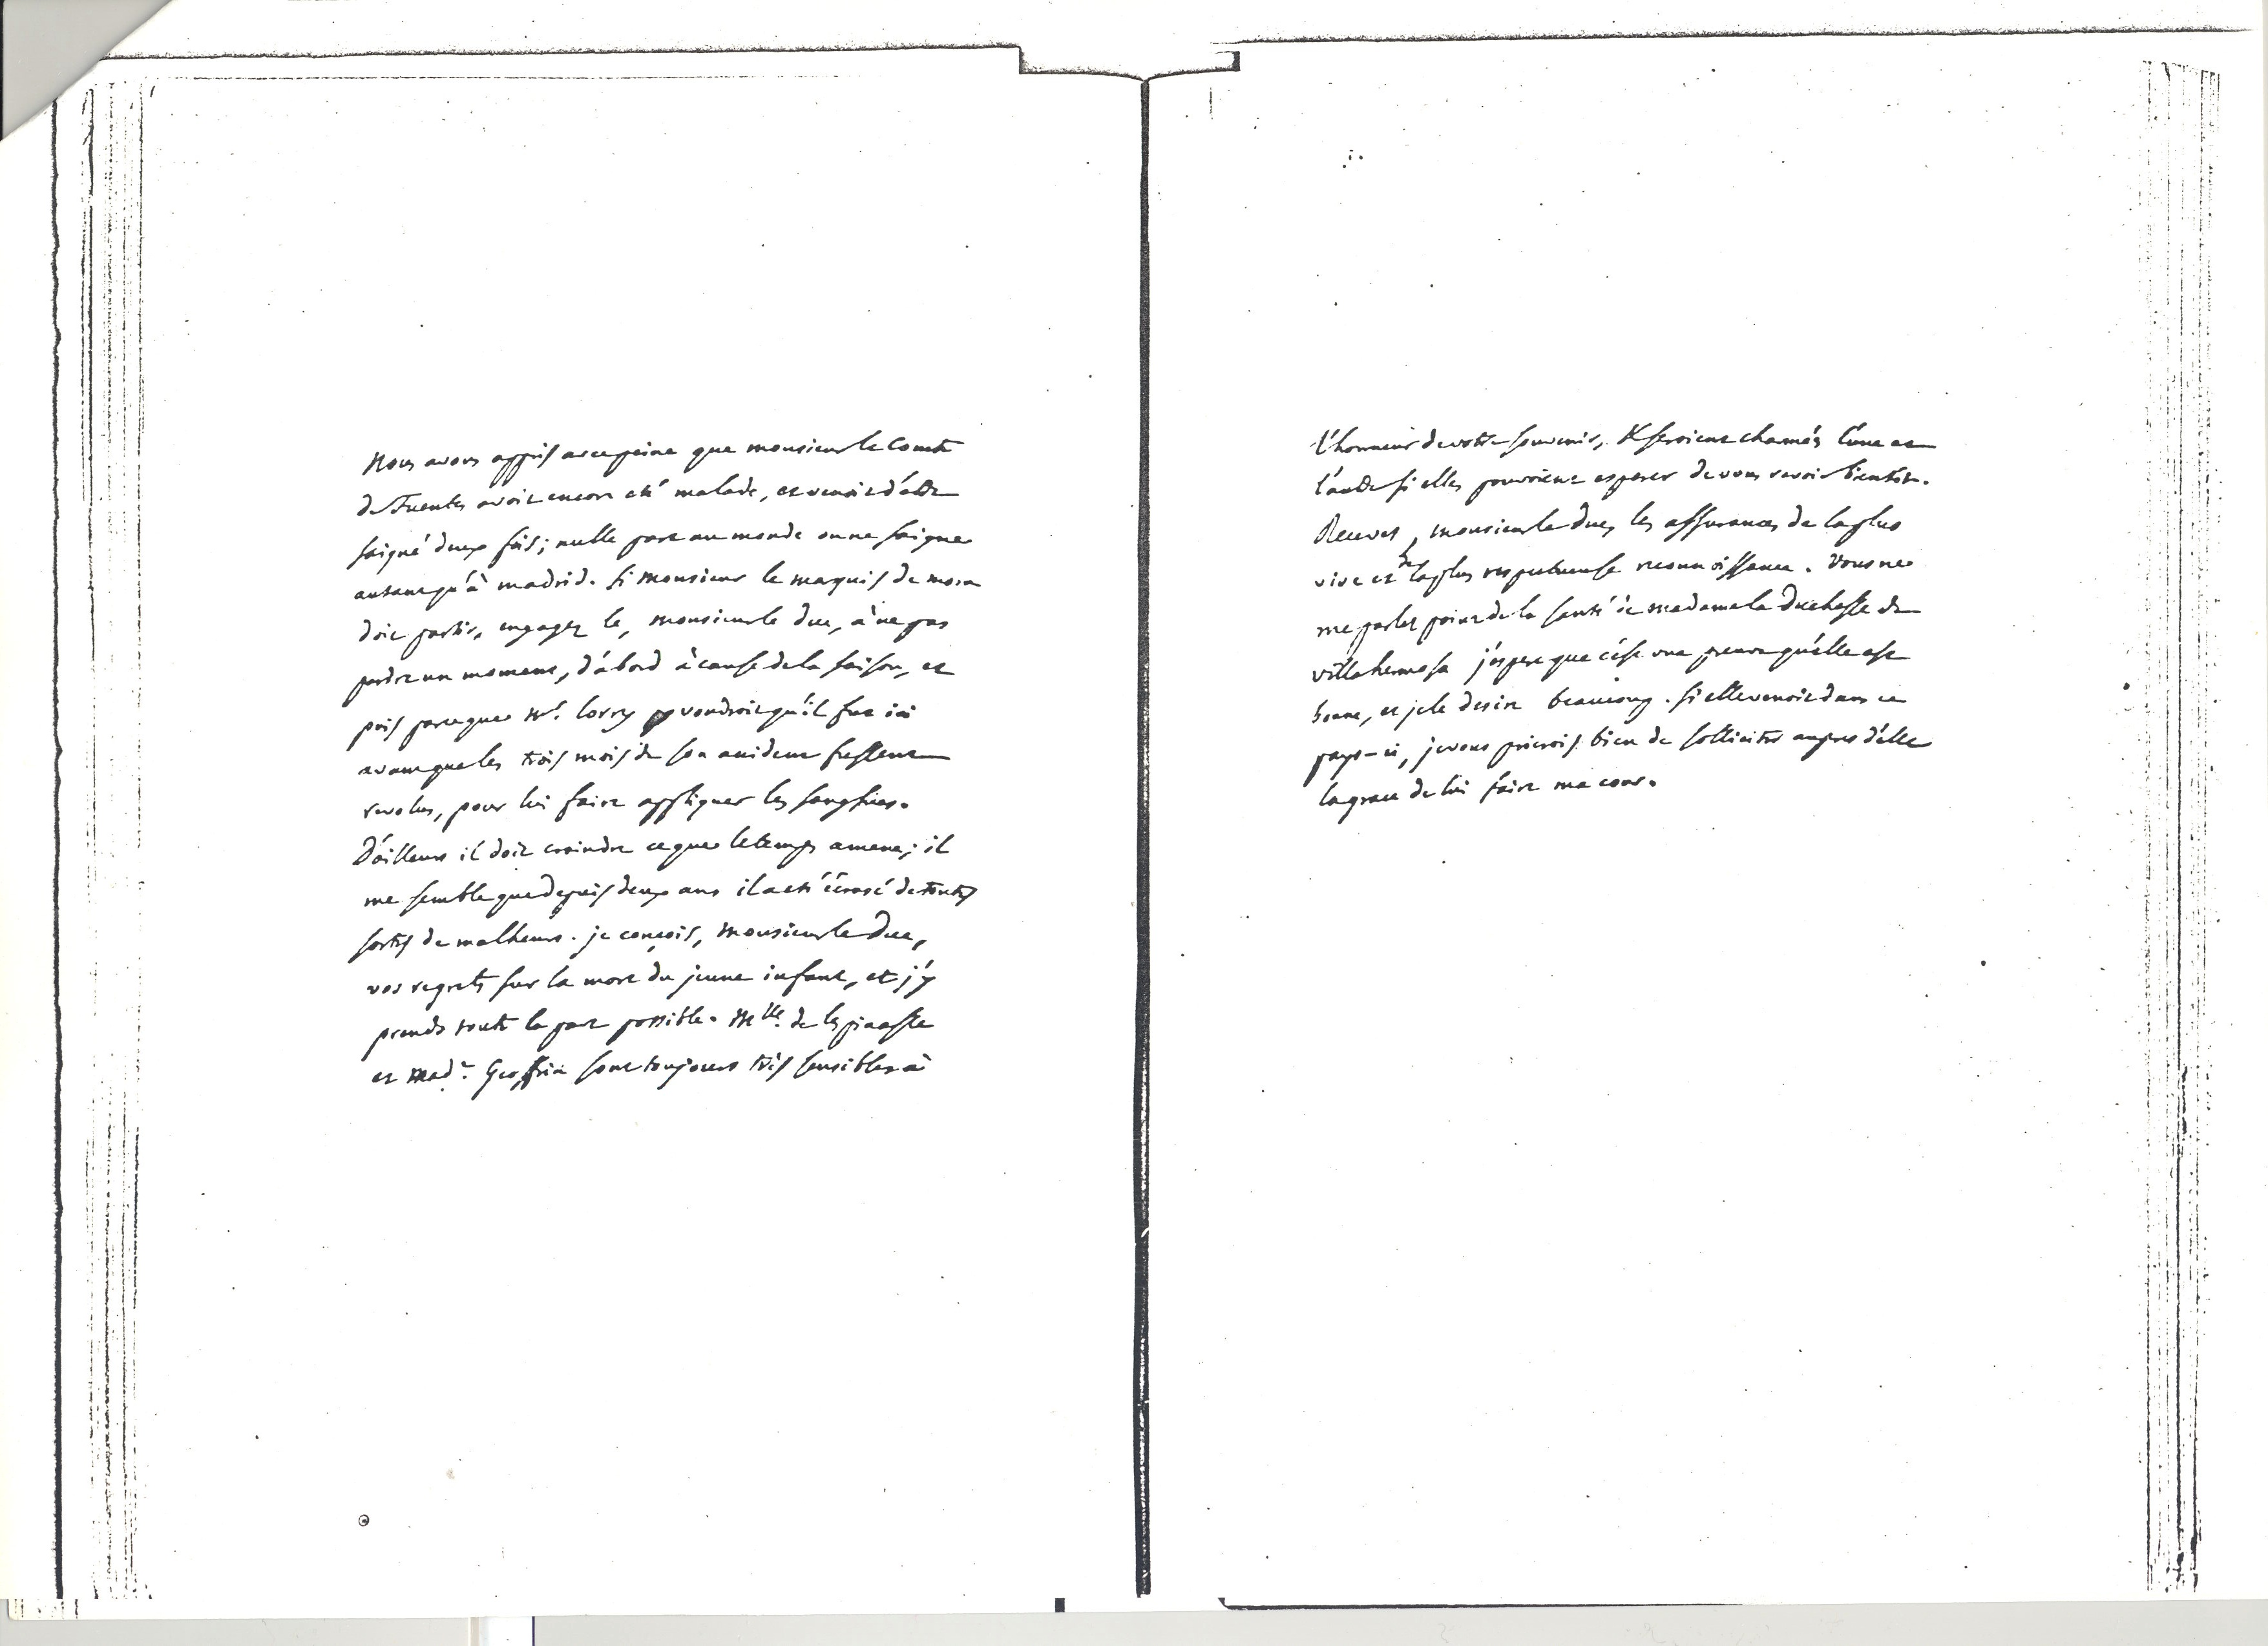 Nous avons appris avec peine que monsieur le Comte
de Fuentes avoit encore eté malade, et venoit d'être
saigné deux fois; nulle part au monde on ne saigne
autant qu'à madrid. Si monsieur le marquis de mora
doit partir, engagez le, monsieur le duc, à ne pas
perdre un moment, d'abord à cause de la saison, et
puis parceque Mr. lorry voudroit qu'il fut ici
avant que les trois mois de son accident fussent
revolus, pour lui faire appliquer les sangsues.
D'ailleurs il doit craindre ce que le temps amene; il
me semble que depuis deux ans il a eté écrasé de toutes
sortes de malheurs. je conçois, monsieur le Duc,
vos regrets sur la mort du jeune infant, et j'y
prends toute la part possible. Mlle. de lespinasse
et Made. Geoffrin sont toujours très sensibles à
l'honneur de votre souvenir, & seroient charmées l'une et
l'autre si elles pouvoient esperer de vous revoir bientôt.
Recevez, monsieur le duc, les assurances de la plus
vive et de la plus respectueuse reconnoissance. Vous ne
me parlez point de la santé de madame la Duchesse de
villahermosa j'espere que c'est une preuve qu'elle est
bonne, et je le desire beaucoup. Si elle venoit dans ce
pays-ci, je vous prierois bien de solliciter aupres d'elle
la grace de lui faire ma cour.